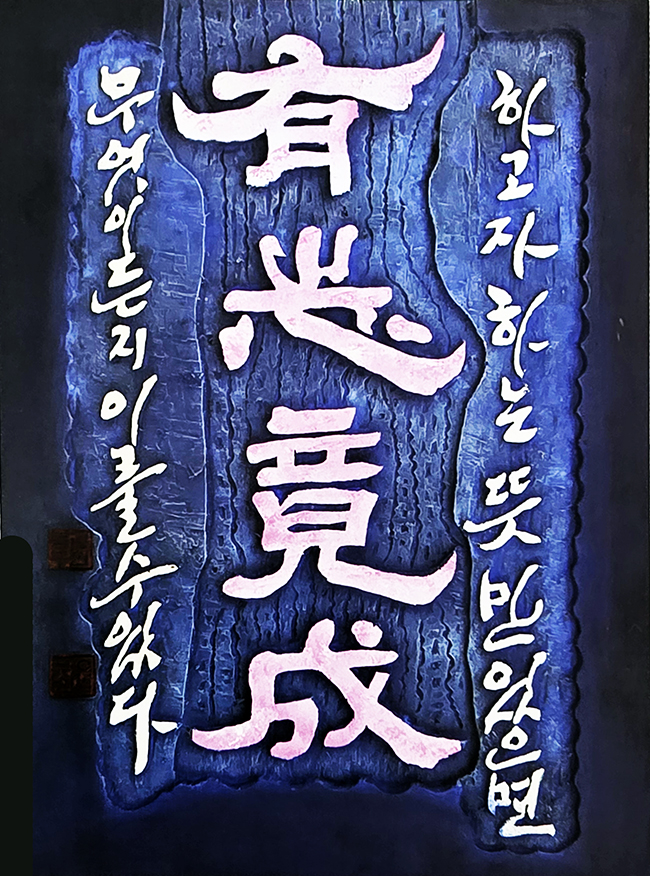 有志竟成
하고자 하는 뜻만 있으면
무엇이든지 이룰 수 있다